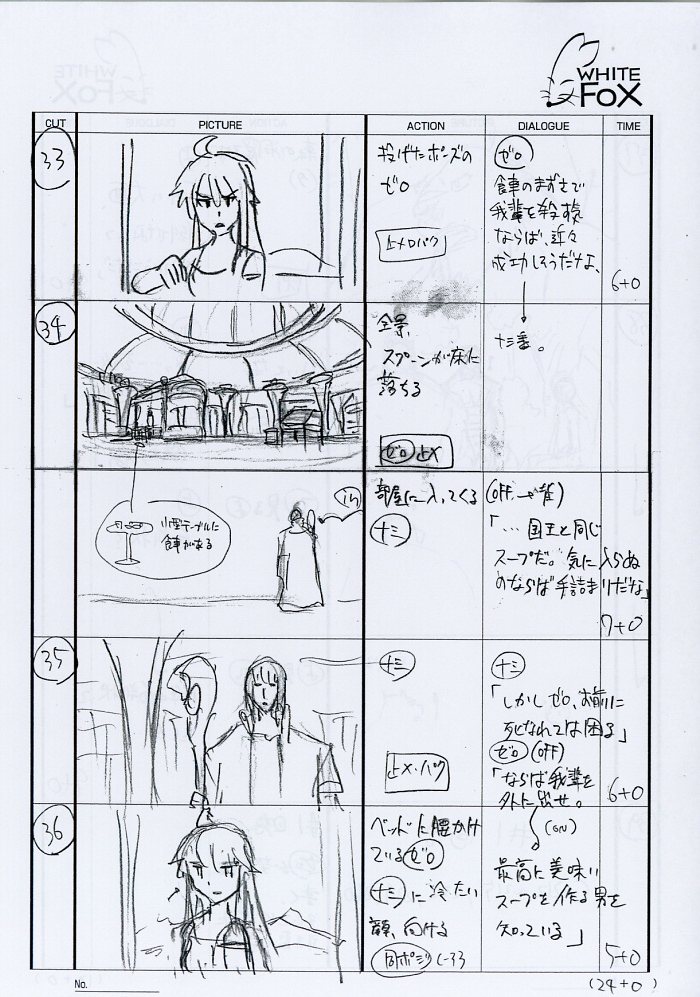 WHITE
FOX
CUT PICTURE ACTION DIALOGUE TIME
33
投げたポーズの
ゼロ
止メ口パク
ゼロ
食事のまずさで
我輩を殺す様
ならば、近々
成功しそうだな、
6+0
34
全景、
スプーンが床に
落ちる
ゼロ 止メ
十三番。
小型テーブルに
食事がある
in
部屋に入ってくる
十三
(OFF
「…国王と同じ
スープだ。気に入らぬ
のならば手詰まりだな」
7+0
35
十三
止メ・パク
十三
「しかしゼロ、お前に
死なれては困る」
ゼロ (OFF)
「ならば我輩を
外に出せ。
6+0
36
ベッドに腰かけ
ているゼロ
十三に冷たい
顔、向ける
同ポジ C-33
(ON)
最高に美味い
スープを作る男を
知っている」
5+0
No.
(24+0)